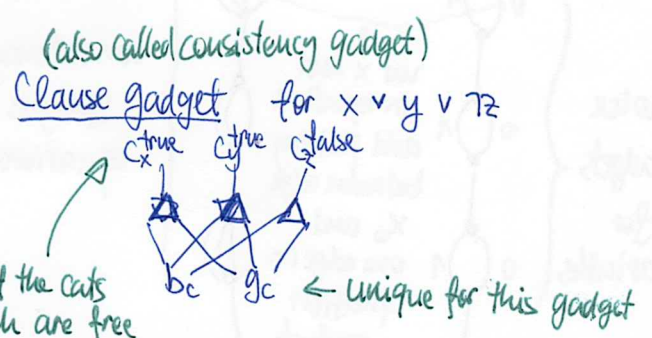 (also called consistency gadget)
Clause gadget for x ∨ y ∨ ¬z
C_x^true C_y^true C_z^false
f the cats b_c g_c ← unique for this gadget
h are free